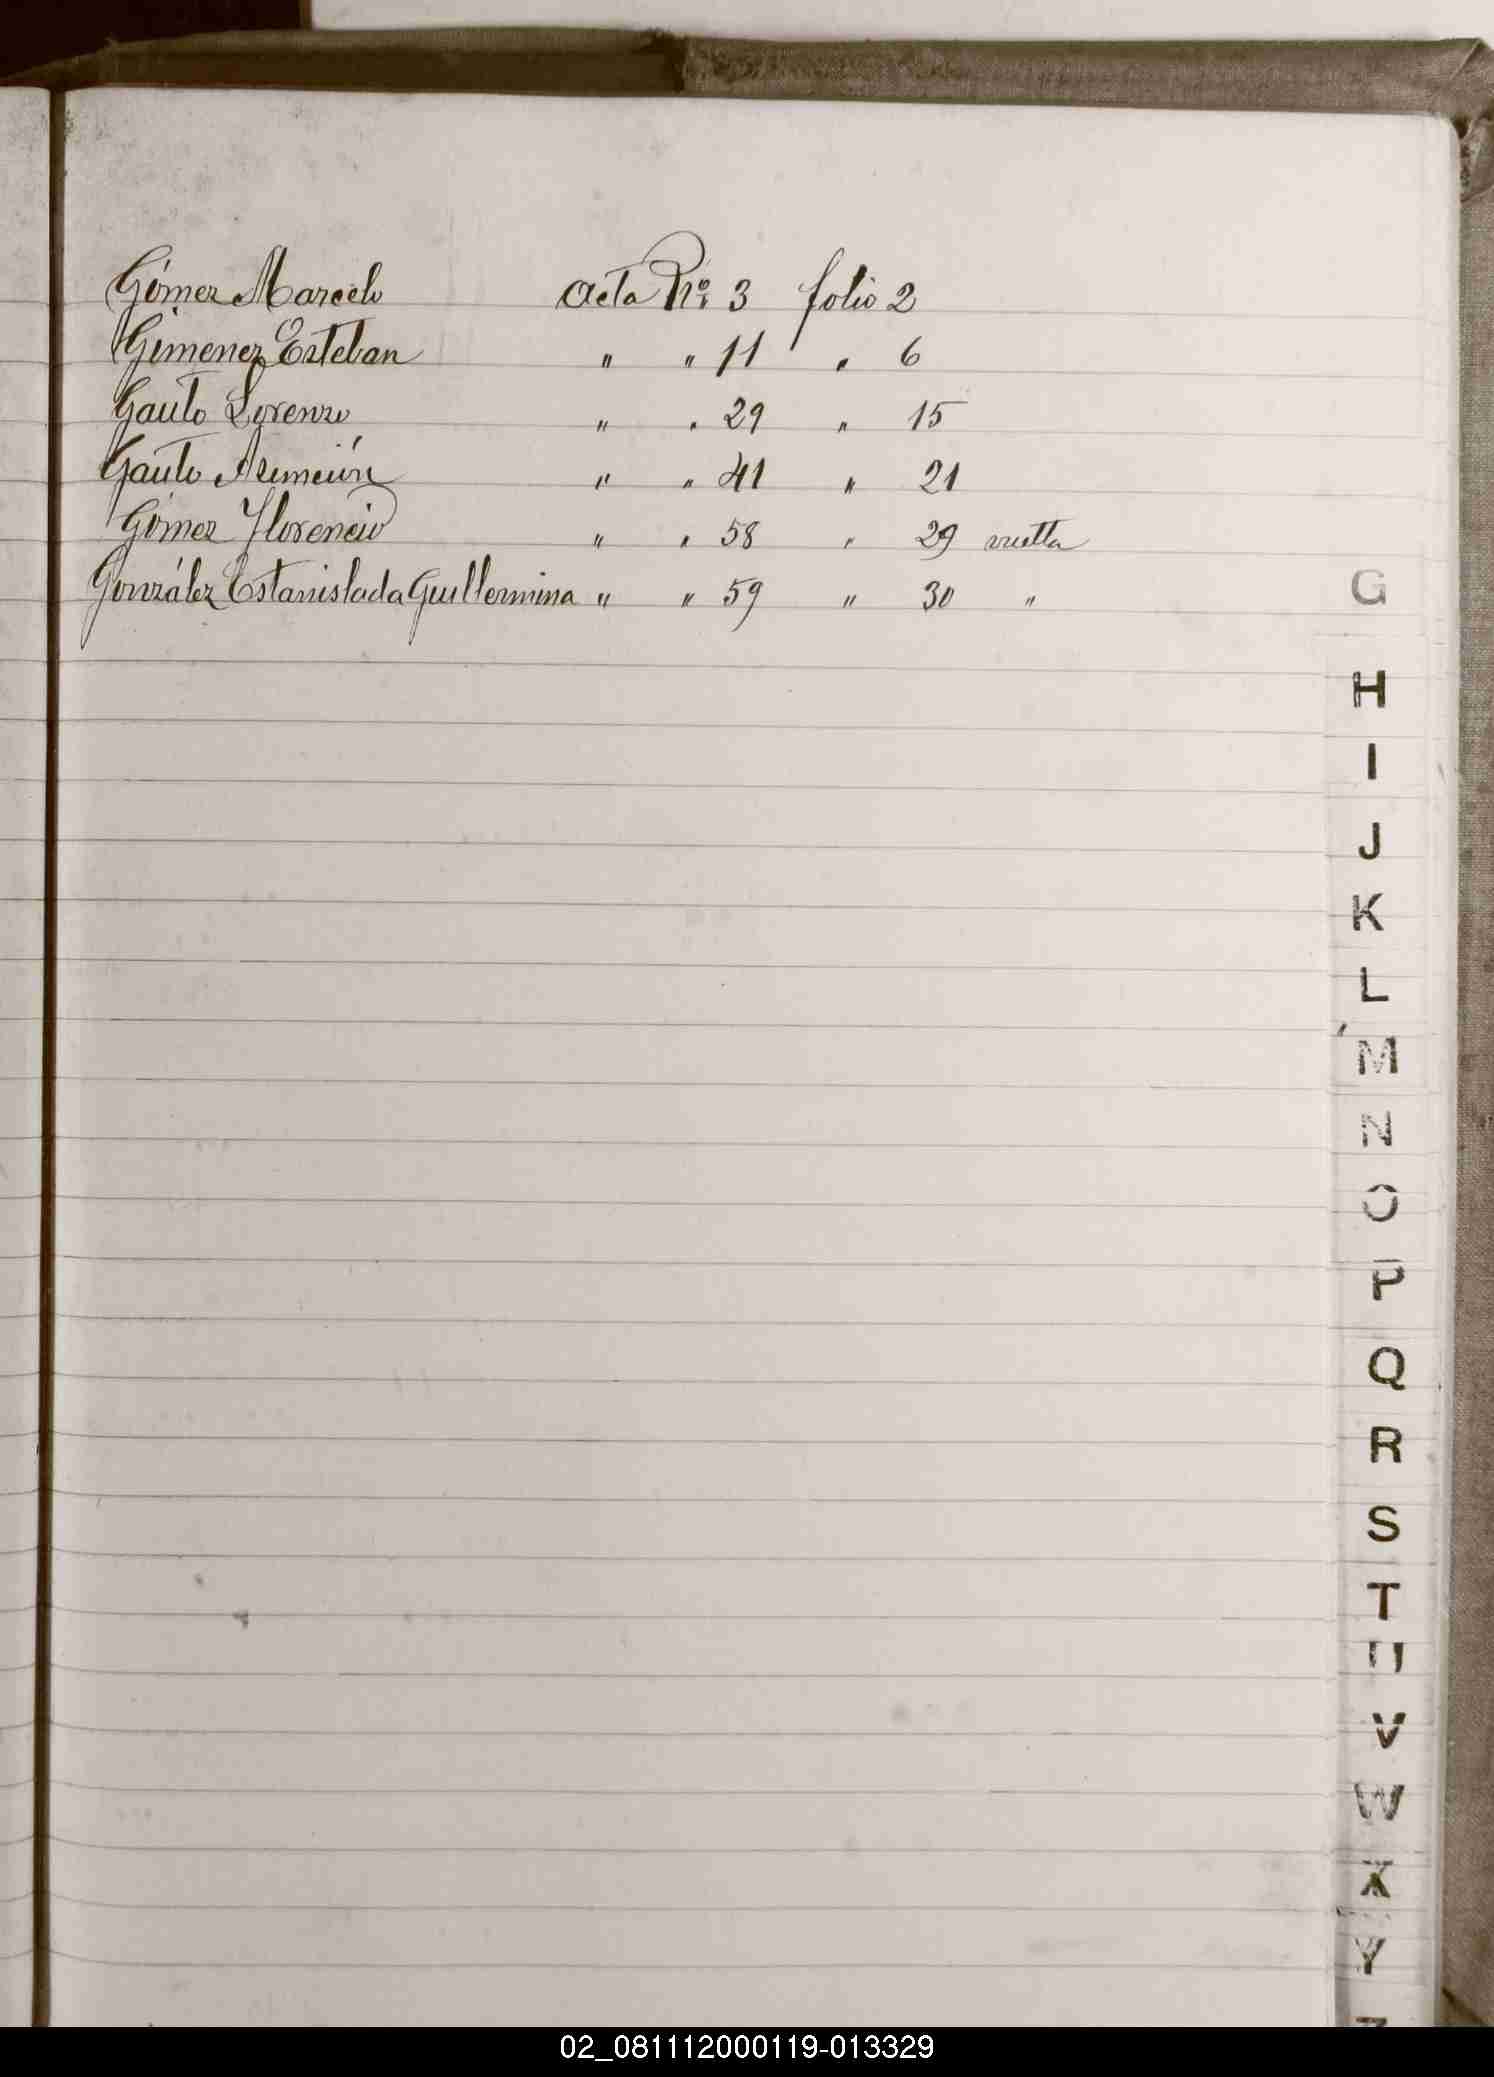 Gómez Marcelo acta Nº 3 folio 2
Gimenez Esteban " " 11 " 6
Gauto Lorenzo " " 29 " 15
Gauto Asunción " " 41 " 21
Gómez Florencio " " 58 " 29 vuelta
González Estanislada Guillermina " " 59 " 30 "
G
H
I
J
K
L
M
N
O
P
Q
R
S
T
U
V
W
X
Y
Z
02_081112000119-013329